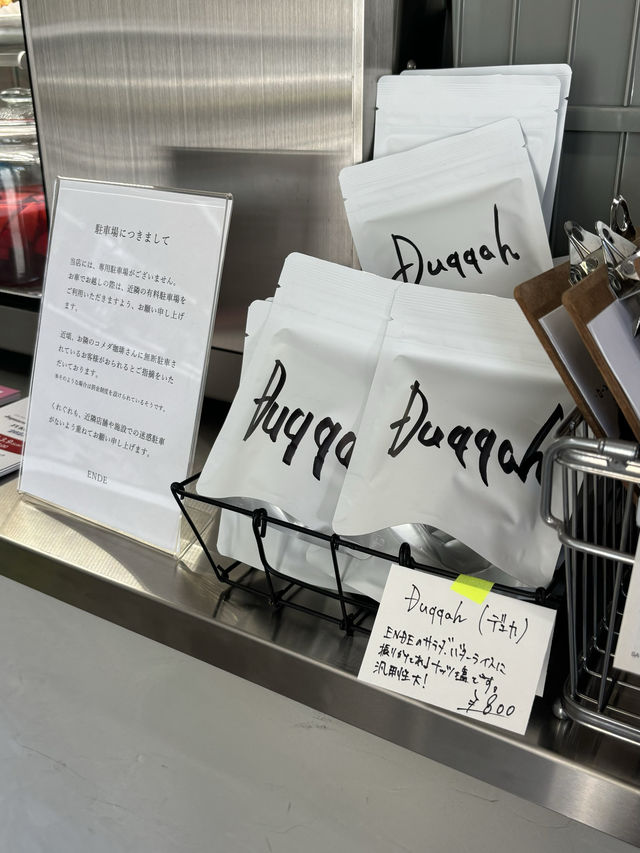 駐車場につきまして
当店には、専用駐車場がございません。
お車でお越しの際は、近隣の有料駐車場を
ご利用いただきますよう、お願い申し上げ
ます。
近頃、お隣のコメダ珈琲さんに無断駐車さ
れているお客様がおられるとご指摘をいた
だいております。
※そのような場合は罰金制度を設けられているそうです。
くれぐれも、近隣店舗や施設での迷惑駐車
がないよう重ねてお願い申し上げます。
ENDE
Duqqah
Duqqa
Duqqah
Duqqah (デュカ)
ENDEのサラダ、バターライスに
振りかけてれナッツ塩です。
汎用性大!
¥800